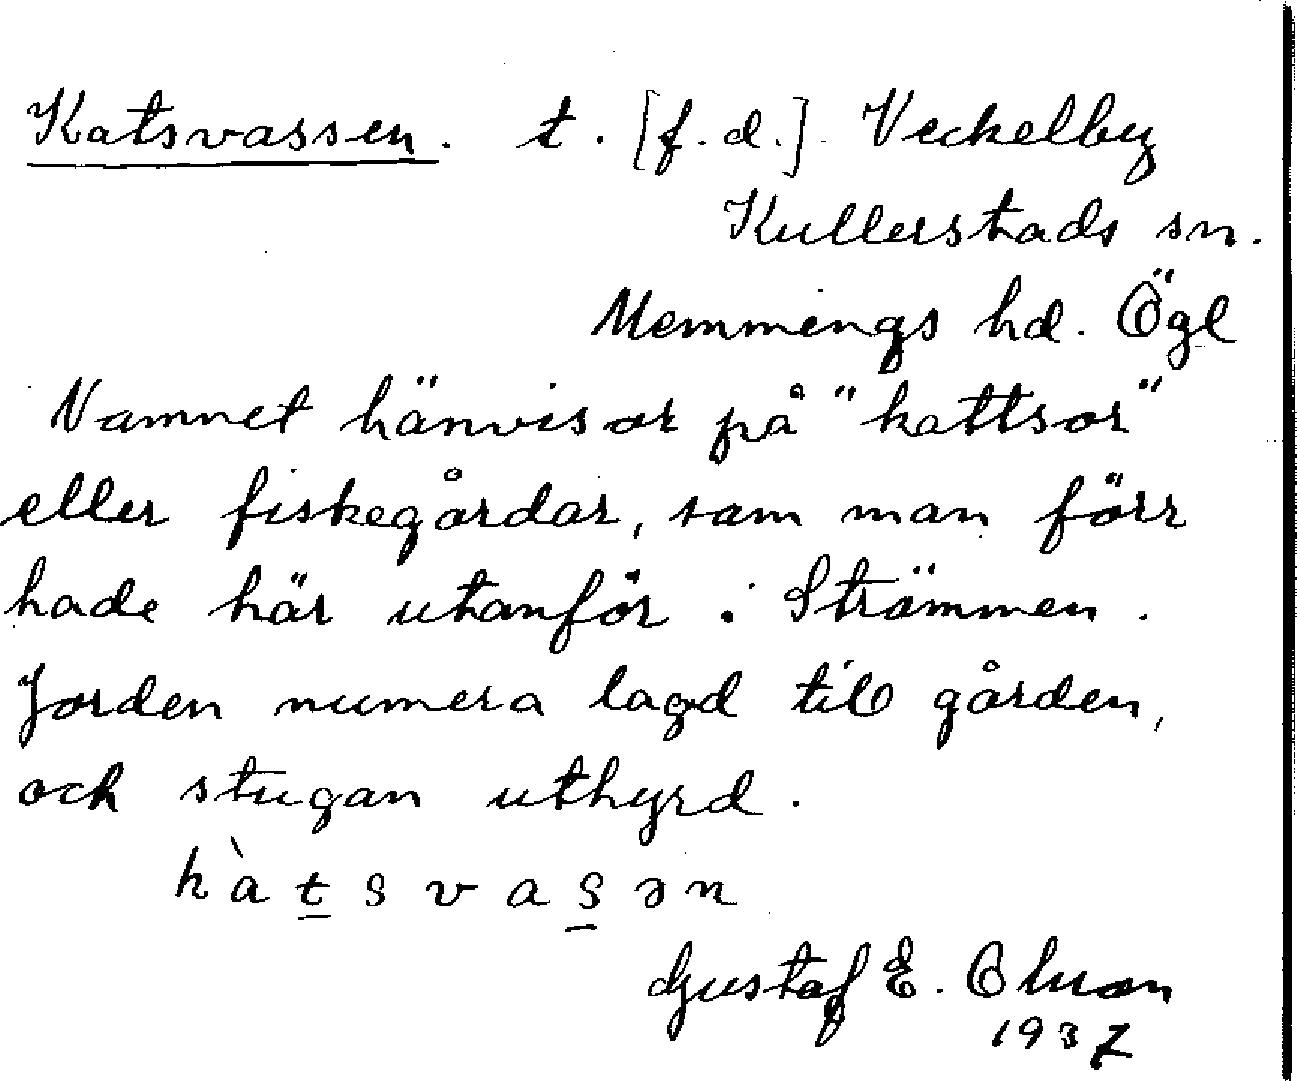 Katsvassen. t. [f.d.] Veckelby
Kullerstads sn.
Memmings hd. Ögl
Namnet hänvisar på "kattsor"
eller fiskegårdar, som man förr
hade här utanför i Strömmen.
Jorden numera lagd till gården,
och stugan uthyrd.
kàtsvasən
Gustaf E. Olsson
1937